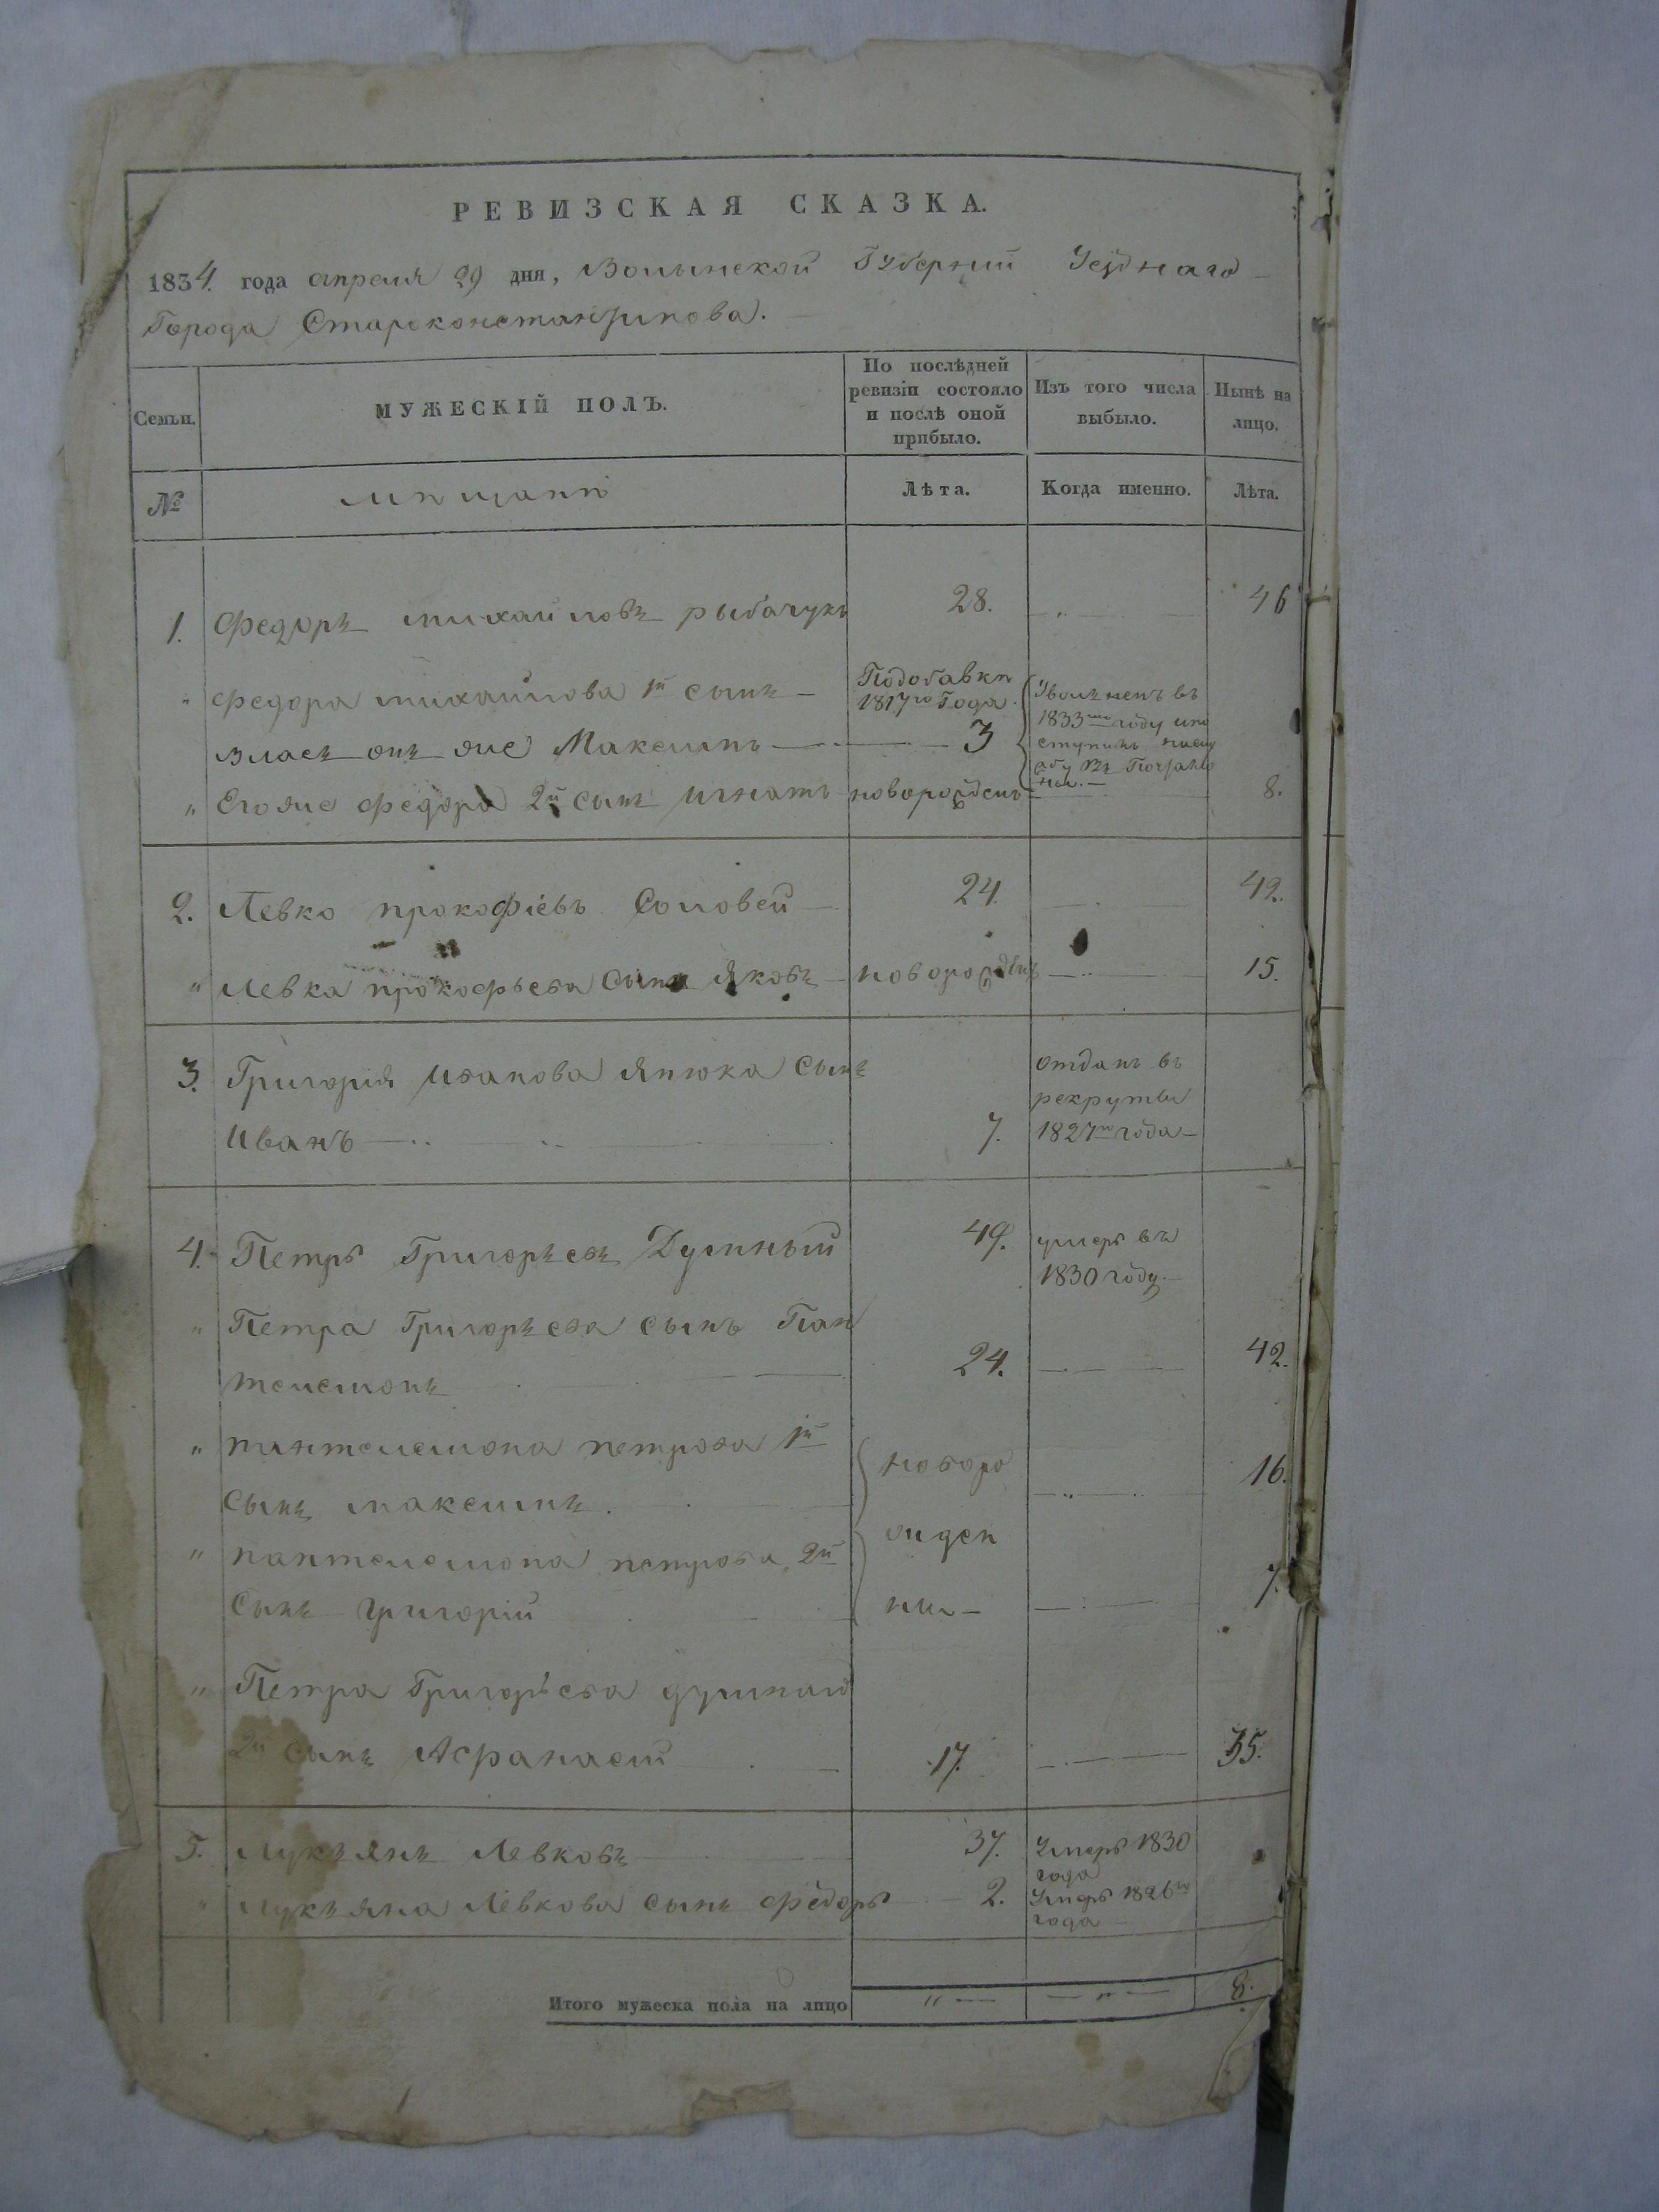 РЕВИЗСКАЯ СКАЗКА.
1834. года апреля 29 дня, Волынской Губернии Уезднаго
Города Староконстантинова.
Семьи.
МУЖЕСКІЙ ПОЛЪ.
По послѣдней
ревизіи состояло
и послѣ оной
прибыло.
Изъ того числа
выбыло.
Нынѣ на
лицо.
№
мѣщанѣ
Лѣта.
Когда именно.
Лѣта.
1. Федоръ михаиловъ рыбачукъ 28. 46
" федора михаилова 1й сынъ
Подобавки
1817го Года
Власъ онъ же Максимъ 3
Уволненъ въ
1833 году
ступилъ
въ
" Егоже федора 2й сынъ игнатъ новорожденъ 8.
2. Левко прокофіевъ Соловей 24. 42.
" Левка прокофьева сынъ Яковъ новорожденъ 15.
3. Григорія иванова янюка сынъ
Иванъ 7.
отданъ въ
рекруты
1827го года
4. Петръ Григорьевъ Думный 49.
умеръ въ
1830 году.
" Петра Григорьева сынъ Пан
телемонъ 24. 42.
" пантелемона петрова 1й
сынъ максимъ. 16.
" пантелемона петрова 2й
сынъ григорій 7.
новоро
жден
ни
" Петра Григорьева думнаго
2й сынъ Афанасій 17. 35.
5. Лукъянъ Левковъ 37. Умеръ 1830
года
" Лукъяна Левкова сынъ федоръ 2. Умеръ 1826го
года
Итого мужеска пола на лицо " " 8.